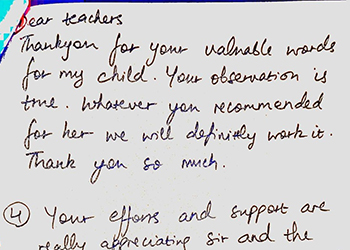 Dear teachers
Thankyou for your valuable words
for my child. Your observation is
true. Whatever you recommended
for her we will definitly work it.
Thank you so much.
4 Your efforts and support are
really appreciating sir and the